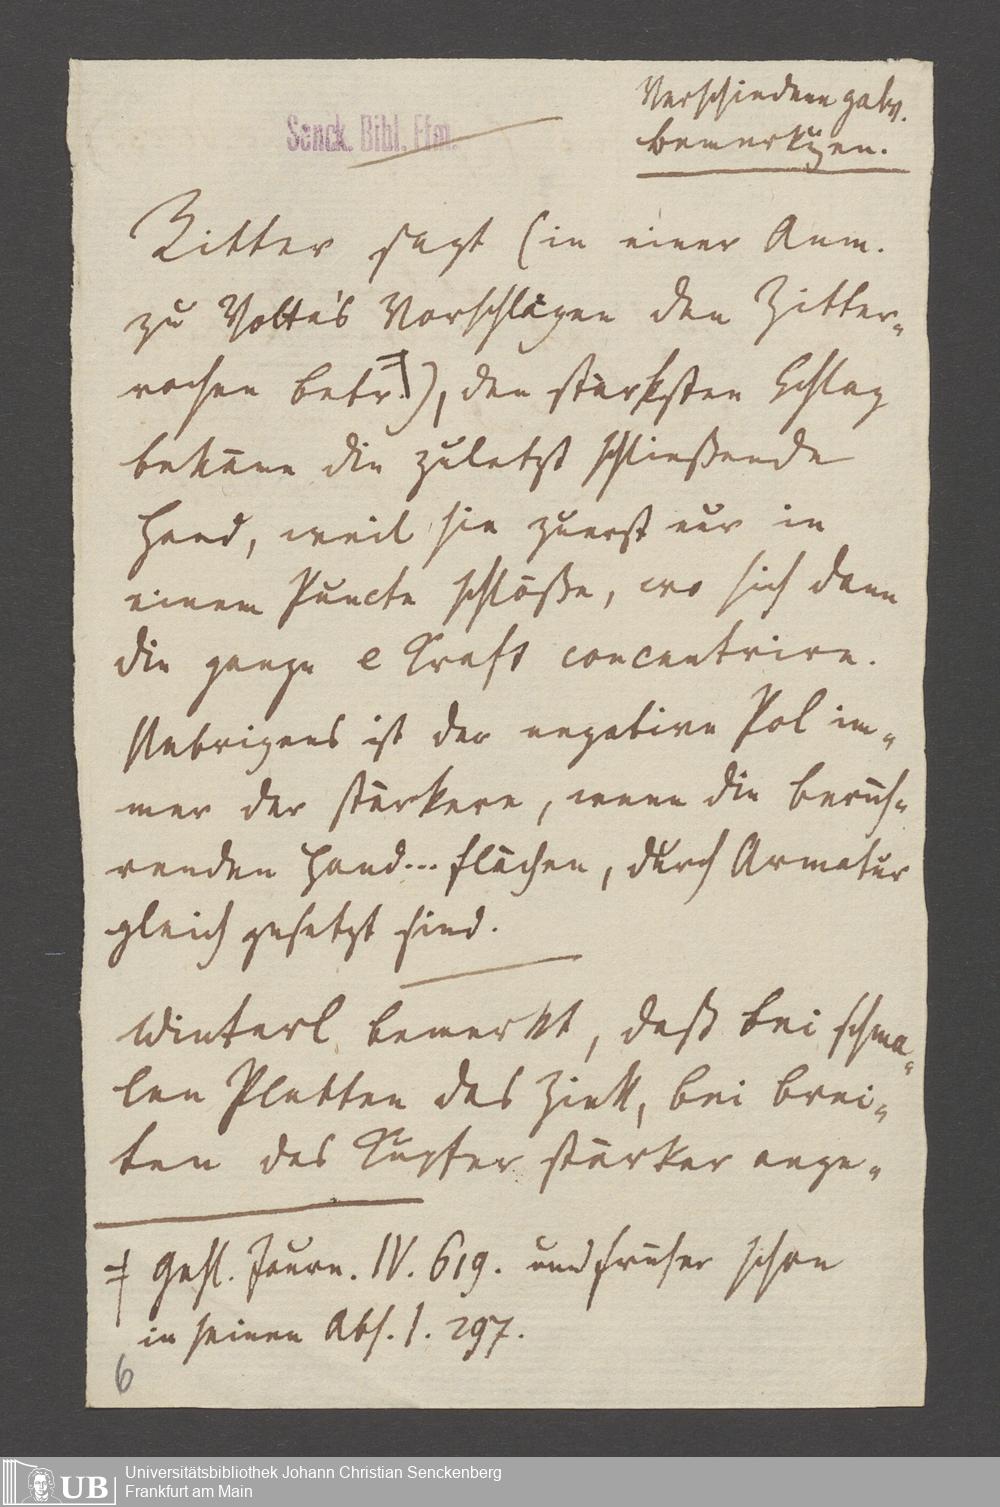 Verschiedene galv.
bemerkungen.
Senck. Bibl. Ffm.
Ritter sagt (in einer Anm.
zu Volta's Vorschlägen den Zitter-
rochen betr.), den stärksten Schlag
bekäme die zuletzt schließende
Hand, weil sie zuerst nur in
einem Puncte schlöße, wo sich dann
die ganze e Kraft concentrire.
Uebrigens ist der negative Pol im-
mer der stärkere, wenn die berüh-
renden Hand... flächen, durch Armatur
gleich gesetzt sind.
Winterl bemerkt, daß bei schma-
len Platten das Zink, bei brei-
ten das Kupfer stärker ange-
Gehl. Journ. IV. 619. und früher schon
in seinen Abh. I. 297.
6
UB Universitätsbibliothek Johann Christian Senckenberg
Frankfurt am Main